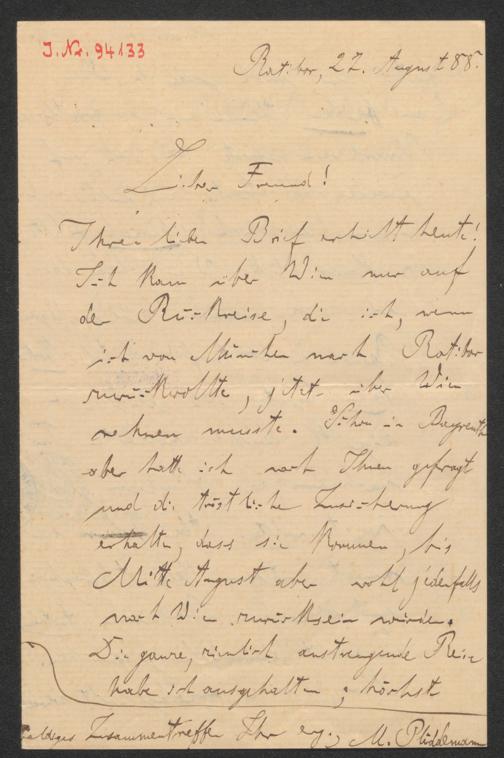 J.Nr. 94133
Ratibor, 27. August 88.
Lieber Freund!
Ihren lieben Brief erhielt heute!
Ich kam über Wien nur auf
der Rückreise, die ich, wenn
ich von München nach Ratibor
zurückwollte, jetzt über Wien
nehmen musste. Schon in Bayreuth
aber hatte ich nach Ihnen gefragt
und die tröstliche Zusicherung
erhalten, dass sie kommen, bis
Mitte August aber wohl jedenfalls
nach Wien zurücksein würden.
Die ganze, ziemlich anstrengende Reise
habe ich ausgehalten; höchst
baldiges Zusammentreffen Ihr erg. M. Plüddemann